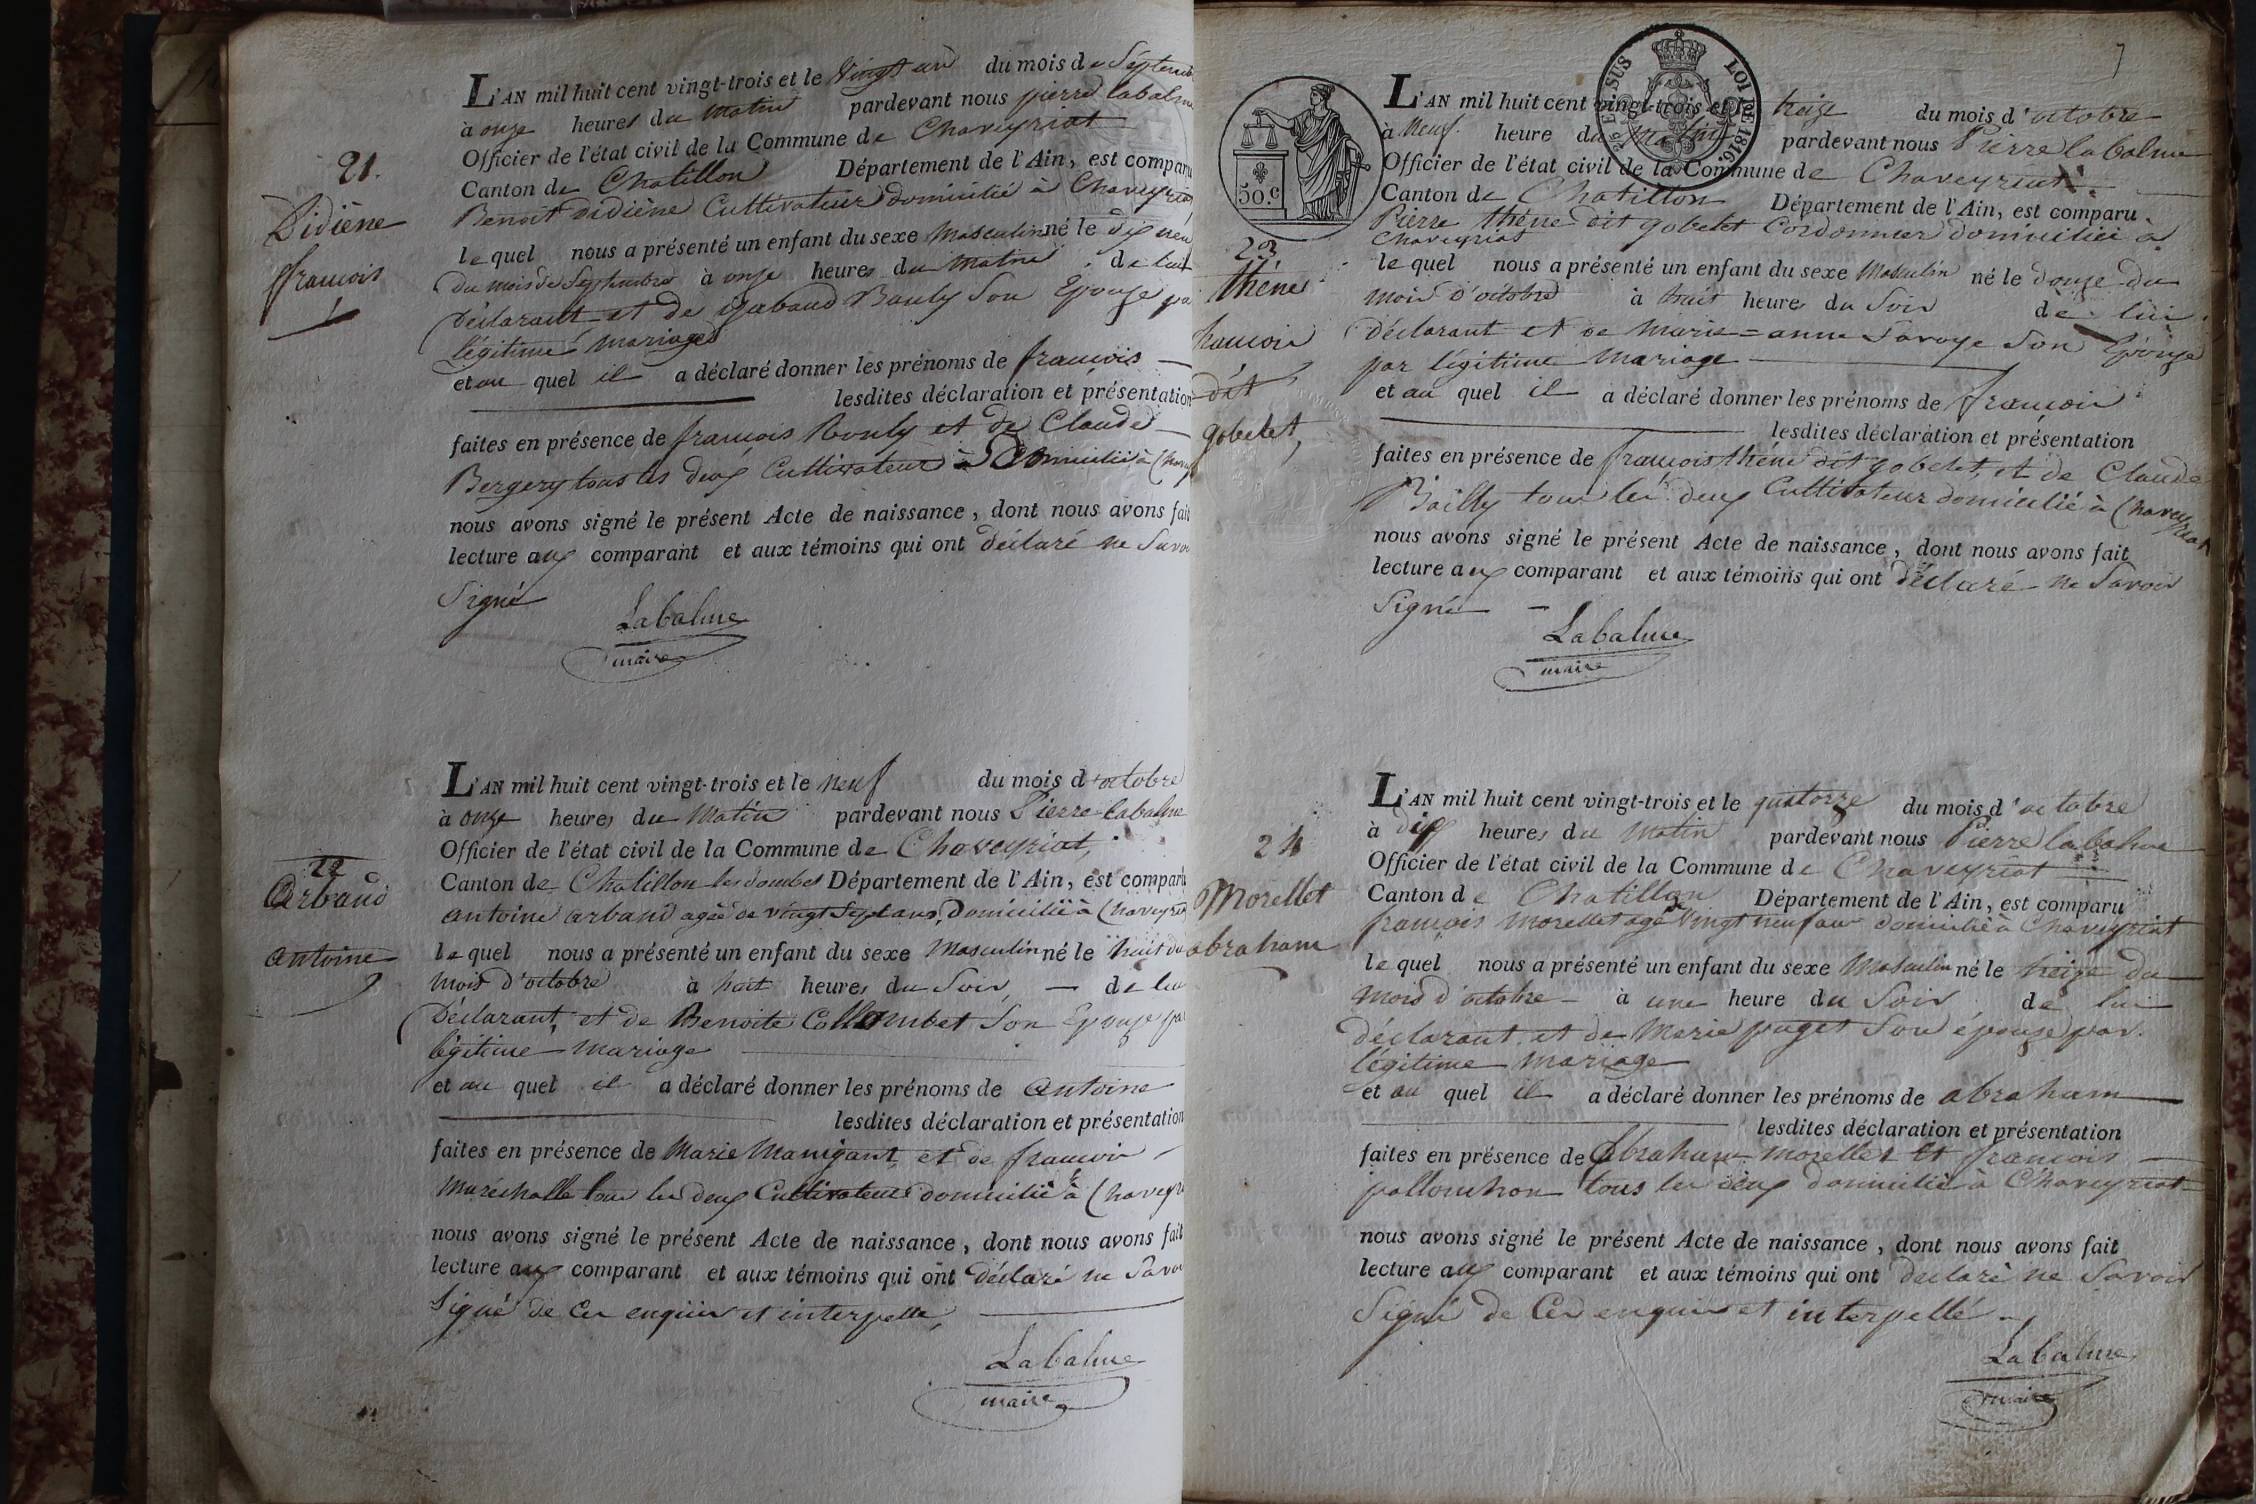 21.
Didiène
françois
L'AN mil huit cent vingt-trois et le vingt un du mois de Septemb
à onze heures du matin pardevant nous pierre labalme
Officier de l'état civil de la Commune de Chaveyriat
Canton de Chatillon Département de l'Ain, est comparu
Benoit didiène Cultivateur domicilié à Chaveyriat
lequel nous a présenté un enfant du sexe Masculin né le dix neuf
du mois de Septembre à onze heures du matin de lui
déclarant et de Bouly Son Epouse par
légitime mariage
et au quel il a déclaré donner les prénoms de françois
lesdites déclaration et présentation
faites en présence de françois Bouly et de Claude
Bergery tous les deux Cultivateur Domicilié à Chavey
nous avons signé le présent Acte de naissance, dont nous avons fait
lecture aux comparant et aux témoins qui ont déclaré ne Savoir
Signé
Labalme
maire
22
Arbaud
antoine
L'AN mil huit cent vingt-trois et le neuf du mois d'octobre
à onze heures du Matin pardevant nous Pierre labalme
Officier de l'état civil de la Commune de Chaveyriat,
Canton de Chatillon les dombes Département de l'Ain, est comparu
antoine arbaud agée de vingt Sept ans, Domicilié à Chaveyri
lequel nous a présenté un enfant du sexe Masculin né le huit du
mois d'octobre à huit heures du Soir de lui
Déclarant, et de Benoite Collombet Son Epouse pa
légitime mariage
et au quel il a déclaré donner les prénoms de antoine
lesdites déclaration et présentation
faites en présence de Marie Manigant, et de françois
Maréchalle tous les deux Cultivateur domicilié à Chaveyr
nous avons signé le présent Acte de naissance, dont nous avons fait
lecture aux comparant et aux témoins qui ont déclaré ne Savoi
Signé de Ce enquis et interpelle,
Labalme
maire
7
50.c
EN SUS
LOI DE 1816.
23
thène
francois
dit
gobelet,
L'AN mil huit cent vingt-trois et le treize du mois d'octobre
à Neuf heure du Matin pardevant nous Pierre labalme
Officier de l'état civil de la Commune de Chaveyriat
Canton de Chatillon Département de l'Ain, est comparu
Pierre thène dit gobelet Cordonnier domicilié à
Chaveyriat
lequel nous a présenté un enfant du sexe Masculin né le douze du
mois d'octobre à huit heures du Soir de lui
déclarant et de marie=anne Savoye Son Epouze
par légitime Mariage
et au quel il a déclaré donner les prénoms de françois
lesdites déclaration et présentation
faites en présence de françois thène dit gobelet, et de Claude
Bailly tous les deux Cultivateur domicilié à Chaveyriat
nous avons signé le présent Acte de naissance, dont nous avons fait
lecture aux comparant et aux témoins qui ont déclaré ne Savoir
Signé
Labalme
maire
24
Morellet
abraham
L'AN mil huit cent vingt-trois et le quatorze du mois d'octobre
à dix heures du matin pardevant nous Pierre labalme
Officier de l'état civil de la Commune de Chaveyriat
Canton de Chatillon Département de l'Ain, est comparu
françois Morellet agé de vingt neuf ans domicilié à Chaveyriat
lequel nous a présenté un enfant du sexe Masculin né le treize du
mois d'octobre à une heure du Soir de lui
déclarant et de Marie puget Son épouze par
légitime mariage
et au quel il a déclaré donner les prénoms de abraham
lesdites déclaration et présentation
faites en présence de Abraham morellet et françois
pallouchon tous les deux domicilié à Chaveyriat
nous avons signé le présent Acte de naissance, dont nous avons fait
lecture aux comparant et aux témoins qui ont déclaré ne Savoir
Signé de Ce enquis et interpellé
Labalme
maire